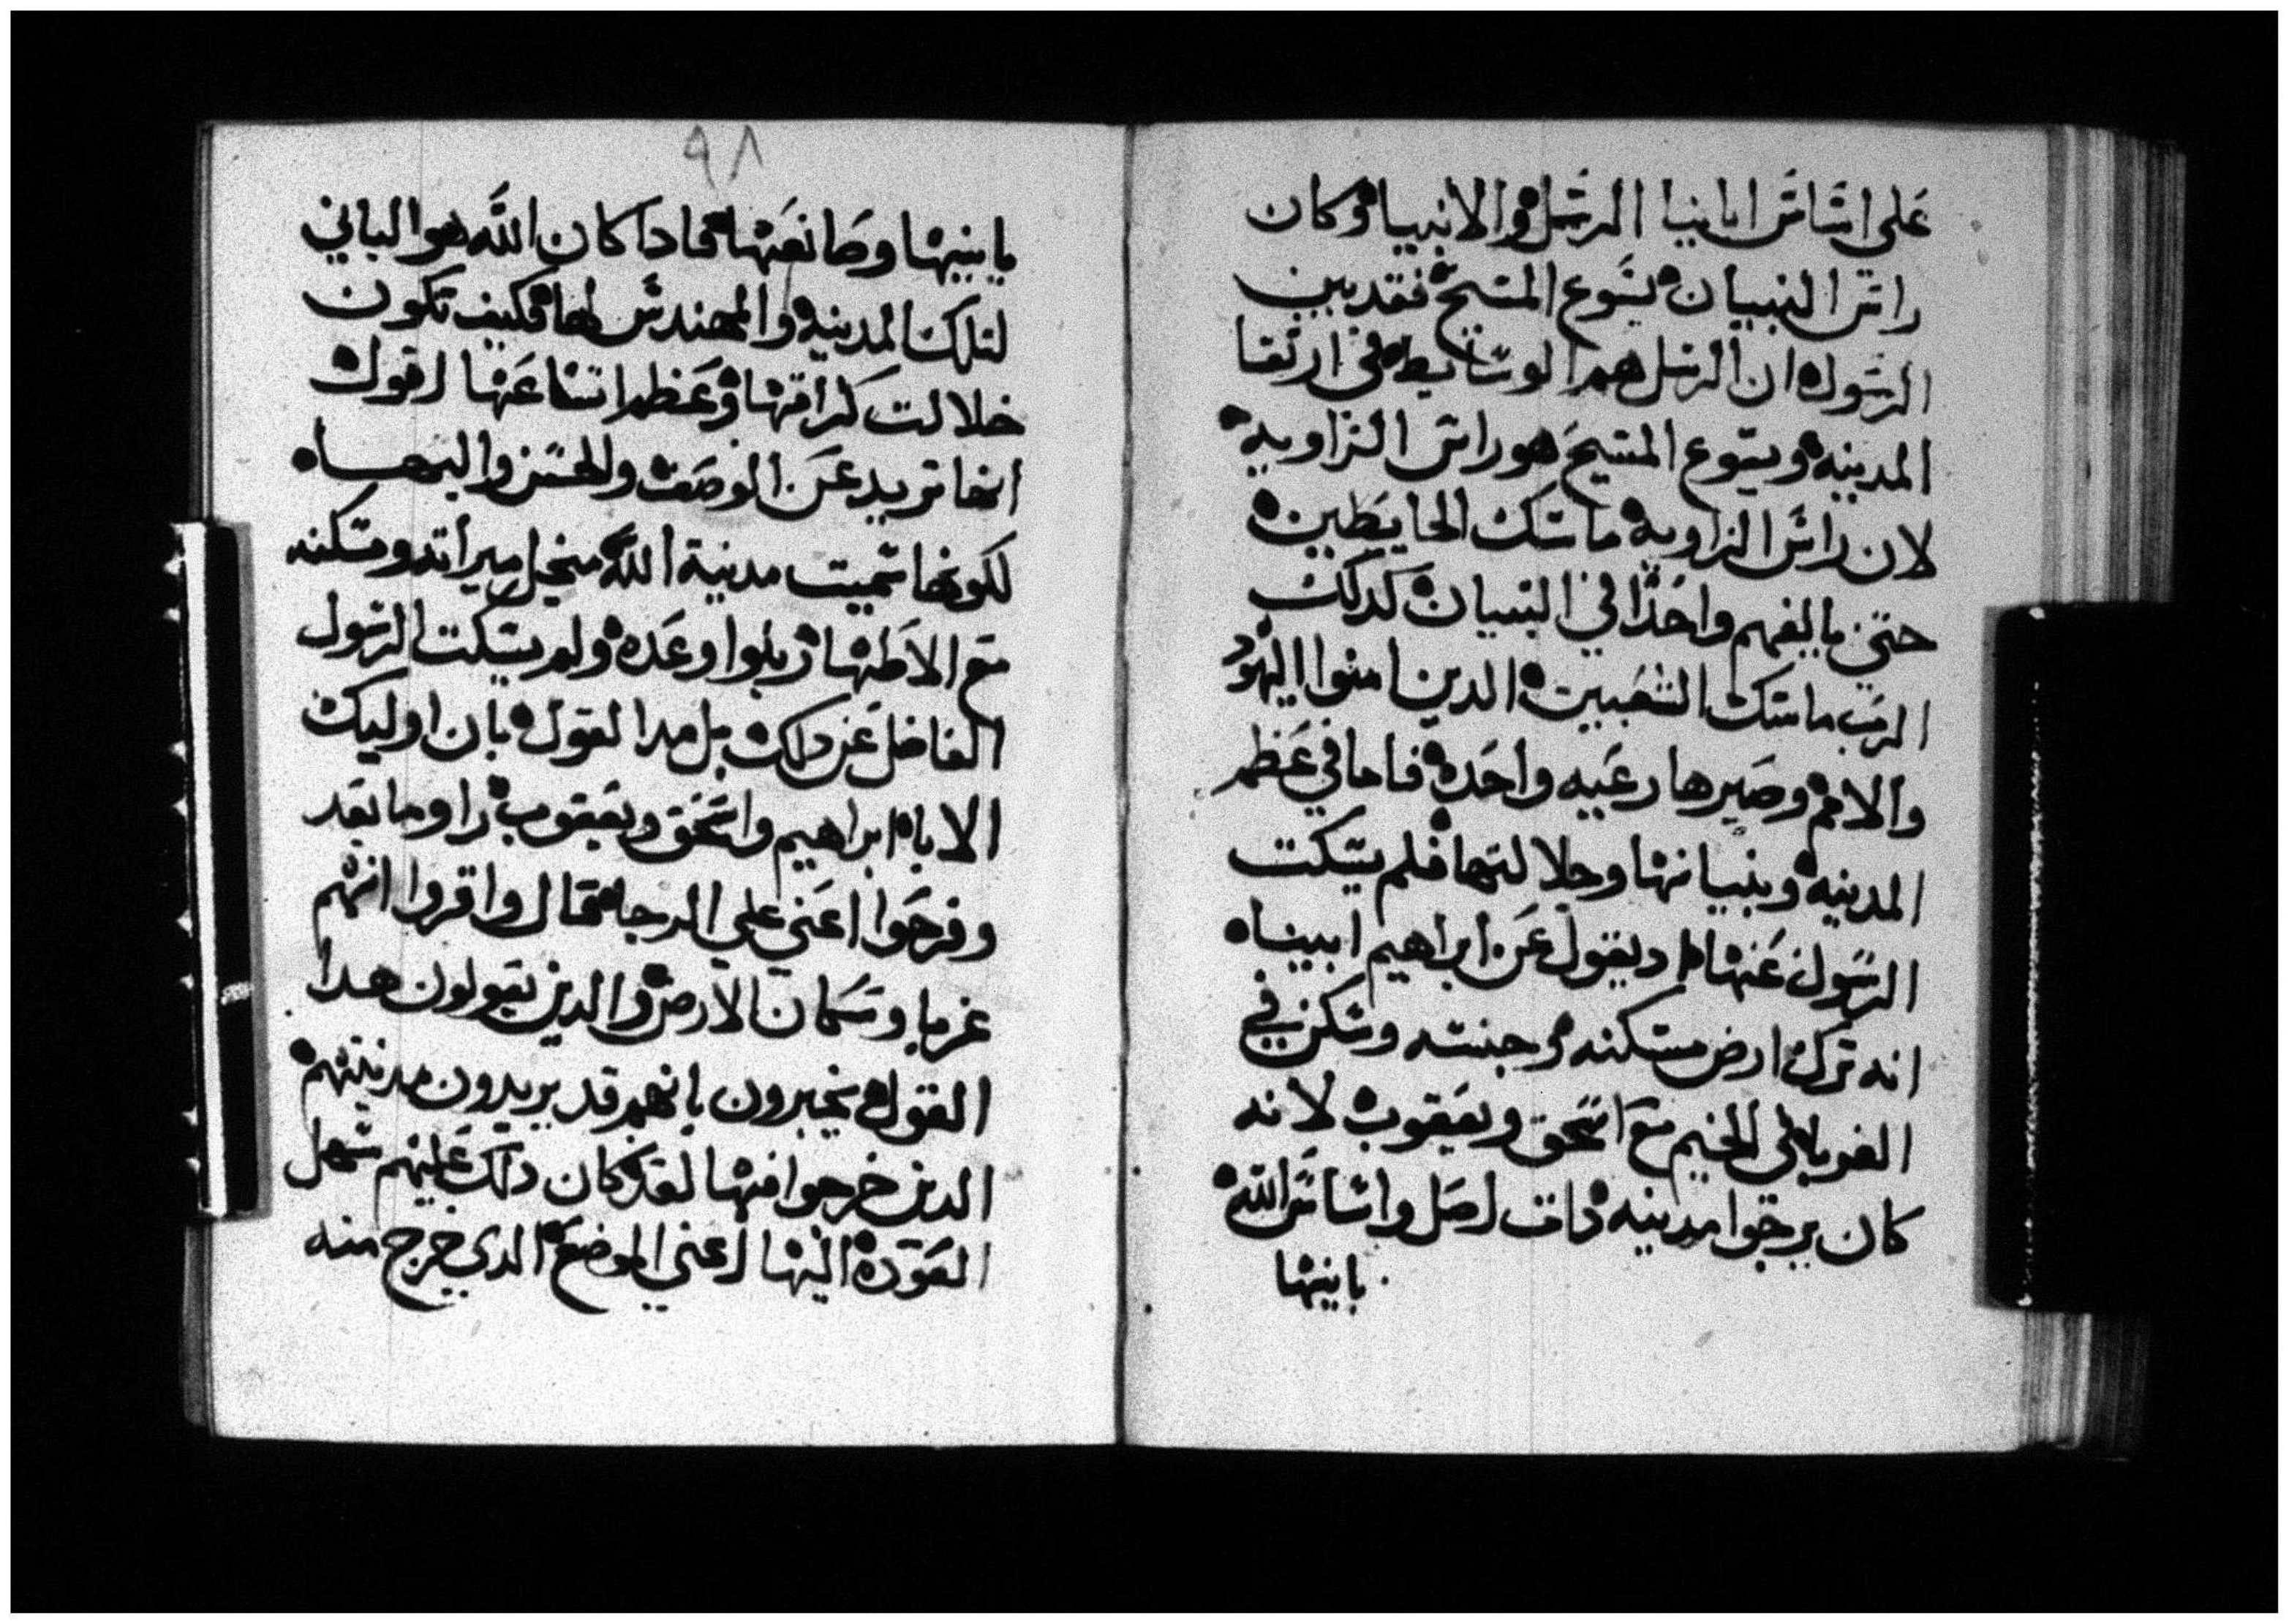 على اساس ابانيا الرسل والانبيا وكان
راس البنيان يسوع المسيح فقد بين
الرسول ان الرسل هم الوسايط في ارتقا
المدينه ويسوع المسيح هو راس الزاويه
لان راس الزاويه ماسك الحايطين
حتي يالفهم واحدا في البنيان كدلك
الرب ماسك الشعبين الدين امنوا اليهود
والامم وصيرها رعيه واحده فاما في عظم
المدينه وبنيانها وجلالتها فلم يسكت
الرسول عنها اد يقول عن ابراهيم ابيناه
انه ترك ارض مسكنه وجنسه وسكن في
الغربا في الخيم مع اسحق ويعقوب لانه
كان يرجوا مدينه دات اصل واساس الله
بانيها
٩٨
بانيها وصانعها فادا كان الله هو الباني
لتلك المدينه والمهندس لها فكيف تكون
جلالت كرامتها وعظم اتساعها اقول
انها تزيد عن الوصف والحسن والبهاه
لكونها سميت مدينة الله محل ميراته ومسكنه
مع الاطهار بلوا وعده ولم يسكت الرسول
الفاضل عن دلك بل مدا القول بان اوليك
الابا ابراهيم واسحق ويعقوب راوها بعد
وفرحوا اعني علي الرجا فقال واقروا انهم
غربا وسكان الارض والدين يقولون هدا
القول يخبرون بانهم قد يريدون مدينتهم
الدين خرجوا منها لقد كان دلك عليهم سهل
العوده اليها اعني الموضع الدي خرج منه